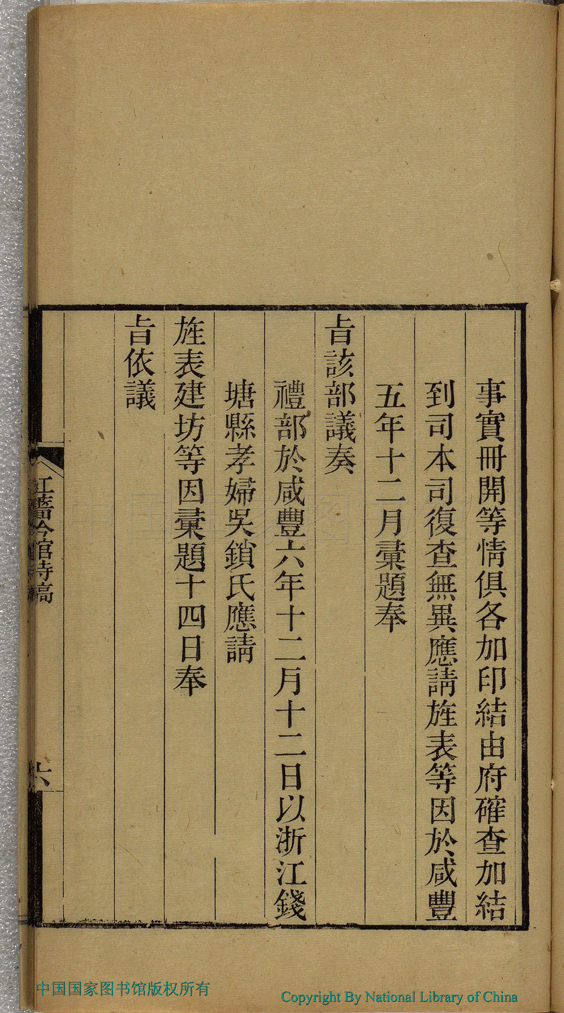 事實冊開等情俱各加印結由府確查加結
到司本司復查無異應請旌表等因於咸豐
五年十二月彚題奉
旨該部議奏
禮部於咸豐六年十二月十二日以浙江錢
塘縣孝婦吳鎖氏應請
旌表建坊等因彚題十四日奉
旨依議
六
中国国家图书馆版权所有
Copyright By National Library of China